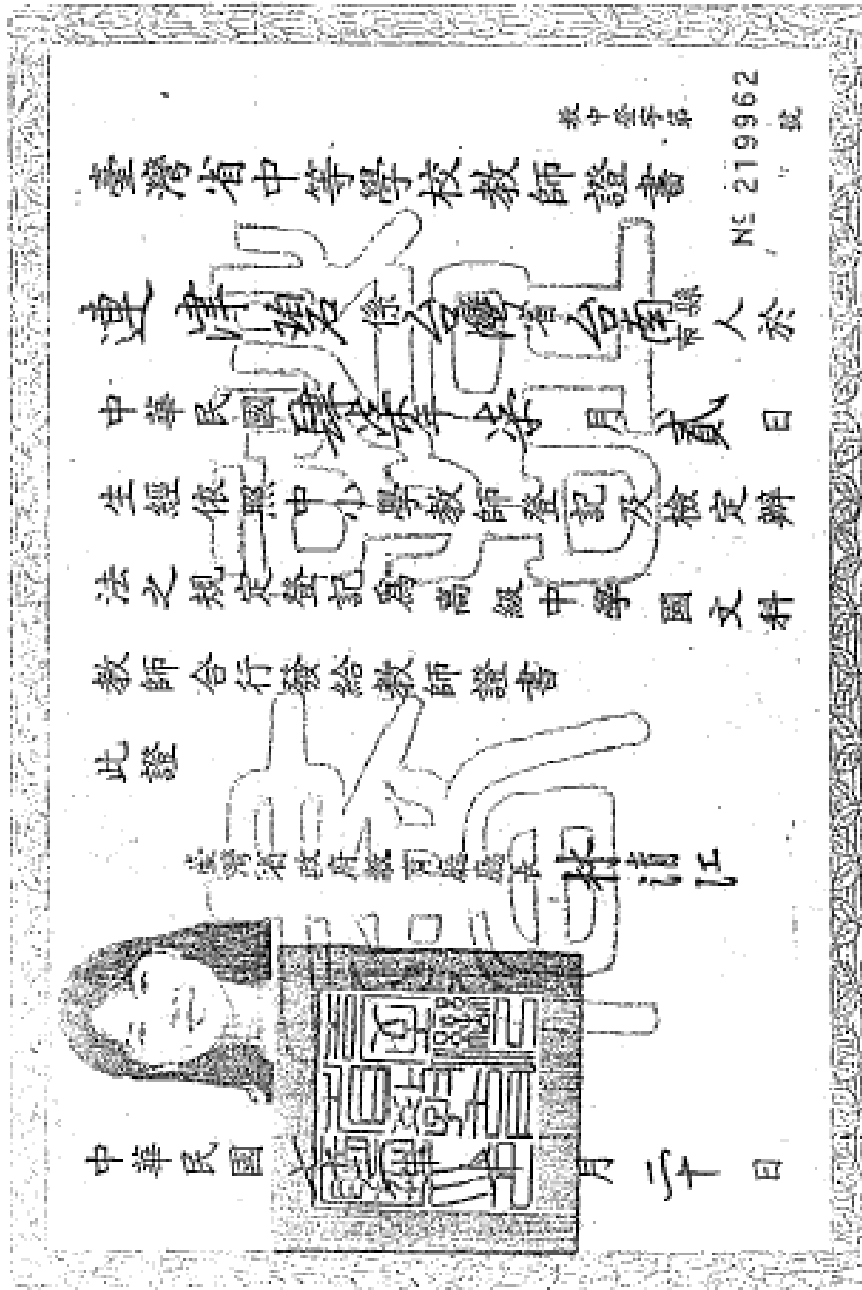 教中登字第
№ 219962
號
臺灣省中等學校教師證書
連 係台灣省台南縣市人於
中華民國肆 年 月貳日
生經依照中小學教師登記及檢定辦
法之規定登記為高級中學國文科
教師合行發給教師證書
此證
臺灣省政府教育廳廳長 林清江
中華民國 年 月二十日